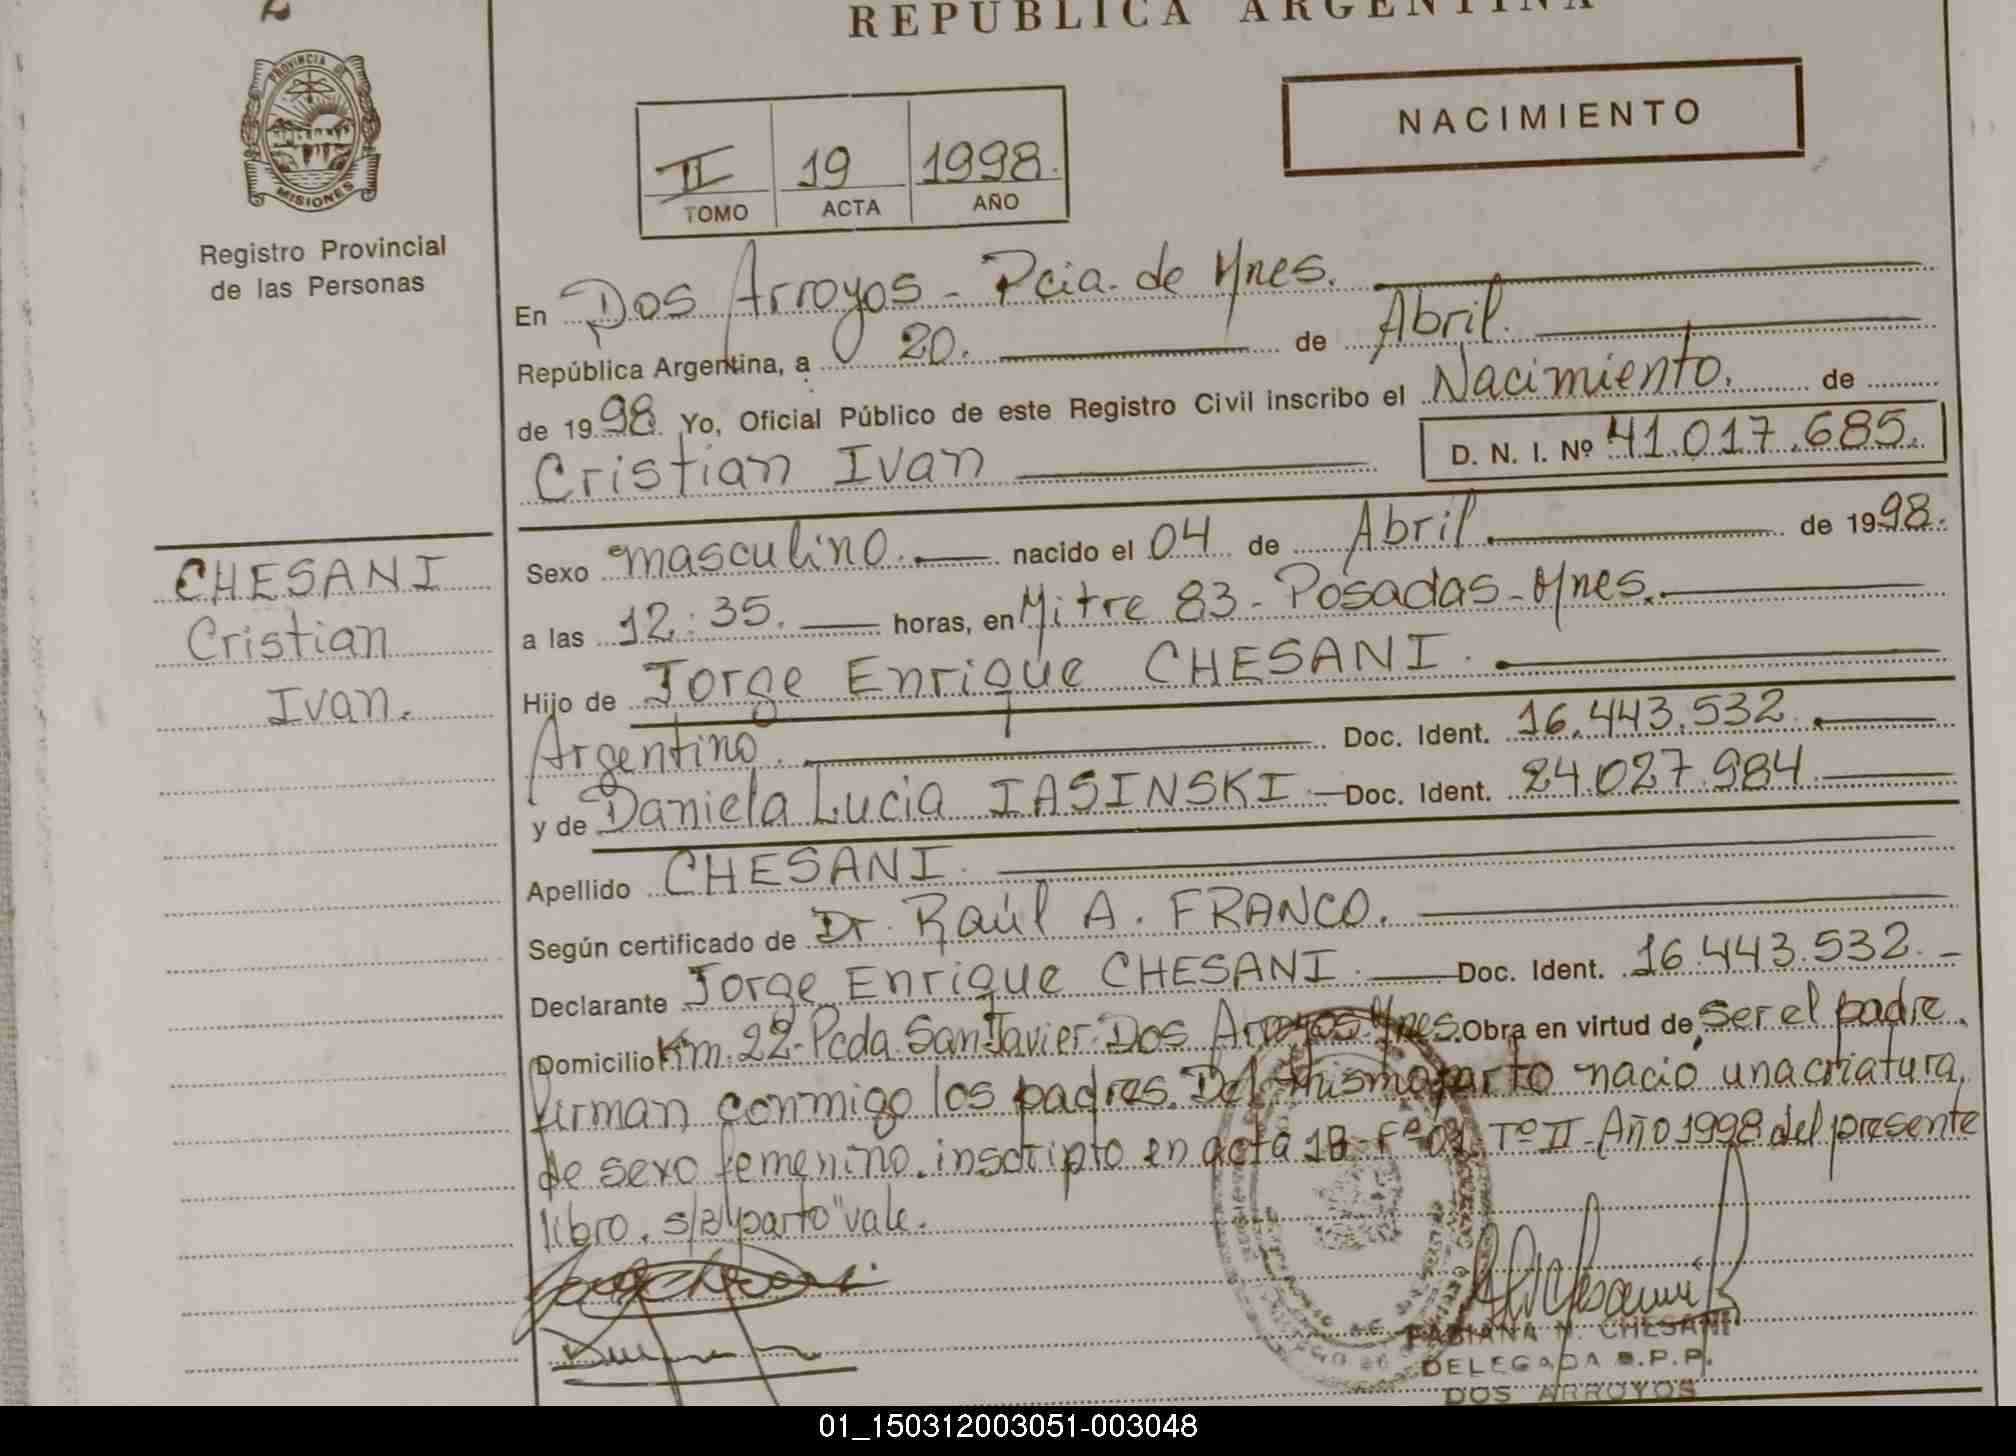 REPUBLICA ARGENTINA
PROVINCIA DE
MISIONES
Registro Provincial
de las Personas
NACIMIENTO
II 19 1998.
TOMO ACTA AÑO
En Dos Arroyos - Pcia. de Mnes.
República Argentina, a 20. de Abril.
de 1998 Yo, Oficial Público de este Registro Civil inscribo el Nacimiento. de
Cristian Ivan D. N. I. Nº 41.017.685.
CHESANI
Cristian
Ivan.
Sexo masculino. nacido el 04 de Abril de 1998.
a las 12:35. horas, en Mitre 83 - Posadas - Mnes.
Hijo de Jorge Enrique CHESANI.
Argentino. Doc. Ident. 16.443.532.
y de Daniela Lucia IASINSKI - Doc. Ident. 24.027.984
Apellido CHESANI.
Según certificado de Dr. Raúl A. FRANCO.
Declarante Jorge Enrique CHESANI. Doc. Ident. 16.443.532. -
Domicilio Km. 22 - Pcda. San Javier - Dos Arroyos Mnes. Obra en virtud de ser el padre.
firman conmigo los padres. Del mismo parto nació una criatura,
de sexo femenino. inscripto en acta 18 - Fº 01. Tº II - Año 1998 del presente
libro. s/r/"parto" vale.
FABIANA N. CHESANI
DELEGADA R.P.P.
DOS ARROYOS
01_150312003051-003048